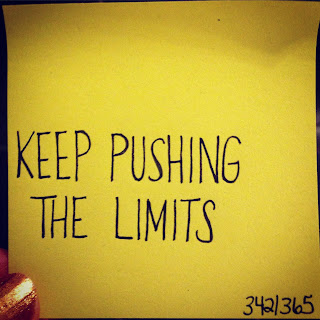 KEEP PUSHING
THE LIMITS
342/365